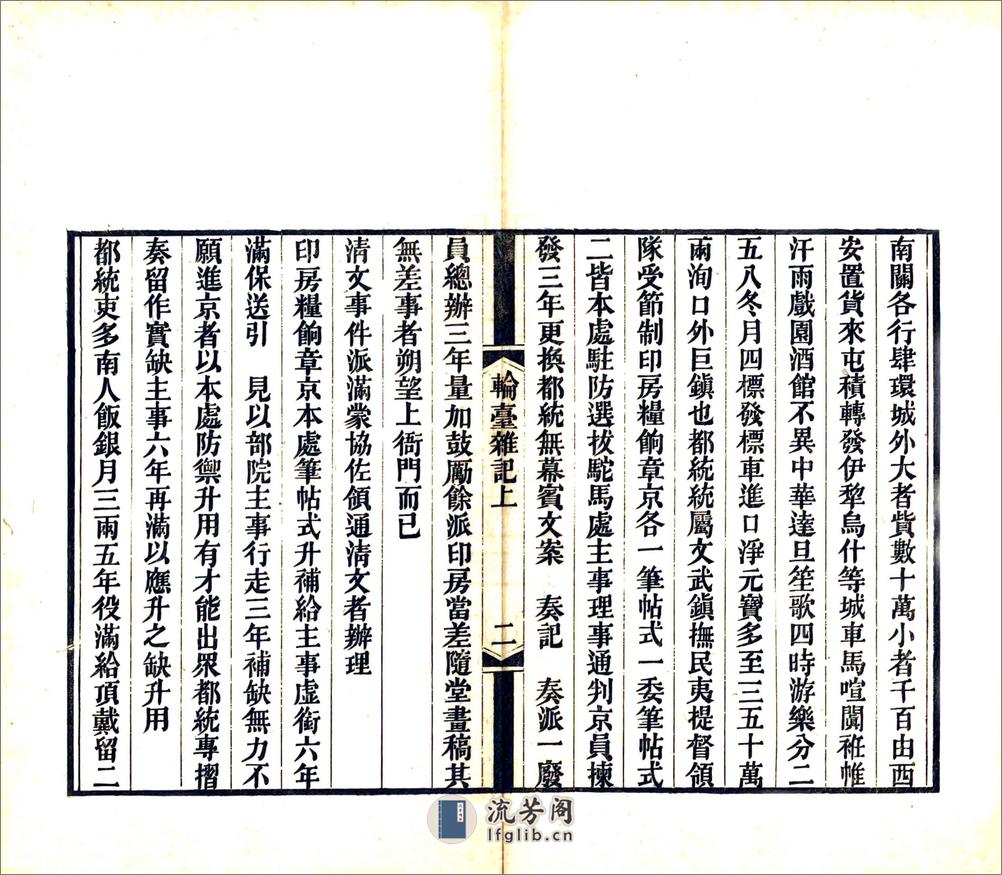 南關各行肆環城外大者貲數十萬小者千百由西
安置貨來屯積轉發伊犂烏什等城車馬喧闐袵帷
汗雨戲園酒館不異中華達旦笙歌四時游樂分二
五八冬月四標發標車進口淨元寶多至三五十萬
兩洵口外巨鎭也都統統屬文武鎭撫民夷提督領
隊受節制印房糧餉章京各一筆帖式一委筆帖式
二皆本處駐防選拔駝馬處主事理事通判京員揀
發三年更換都統無幕賓文案　奏記　奏派一廢
輪臺雜記上　二
員總辦三年量加鼓厲餘派印房當差隨堂畫稿其
無差事者朔望上衙門而已
淸文事件派滿蒙協佐領通淸文者辦理
印房糧餉章京本處筆帖式升補給主事虛銜六年
滿保送引　見以部院主事行走三年補缺無力不
願進京者以本處防禦升用有才能出眾都統專摺
奏留作實缺主事六年再滿以應升之缺升用
都統吏多南人飯銀月三兩五年役滿給頂戴留二
流芳阁
lfglib.cn